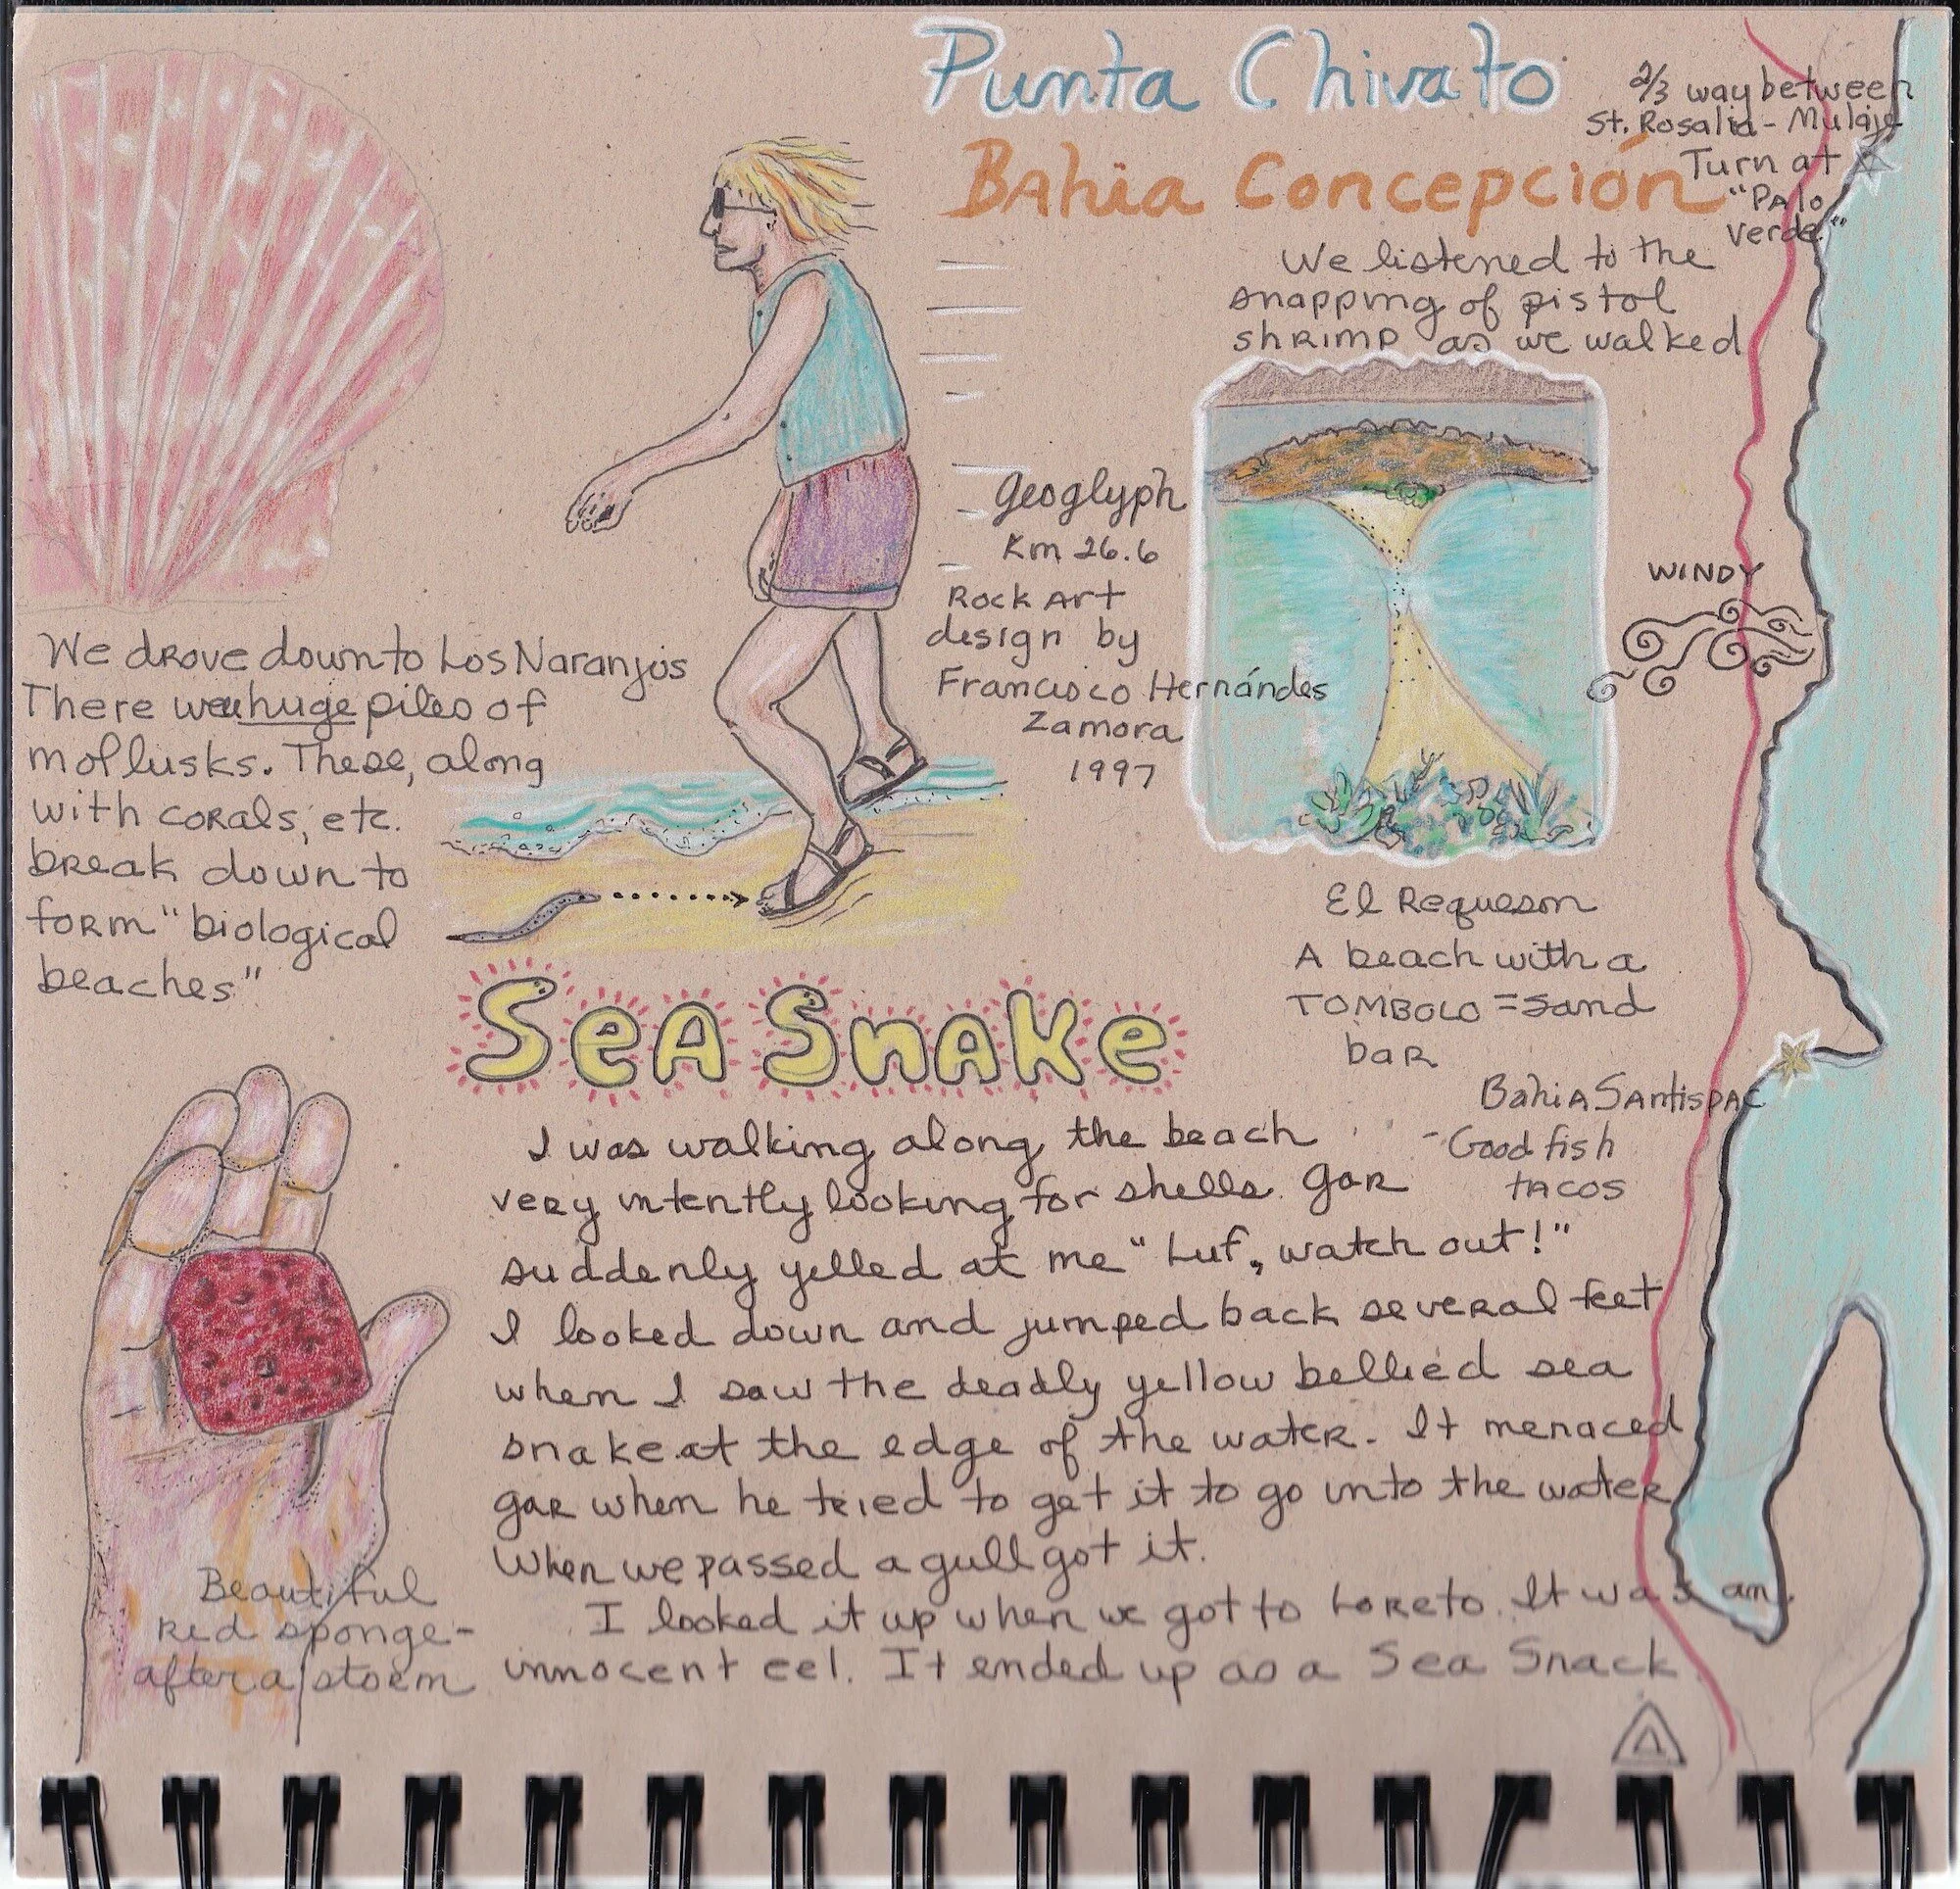 Punta Chivato
Bahia Concepción
2/3 way between
St. Rosalia - Mulaje
Turn at
"Palo
Verde"
We listened to the
snapping of pistol
shrimp as we walked
Geoglyph
Km 26.6
Rock Art
design by
Francisco Hernándes
Zamora
1997
WINDY
We drove down to Los Naranjos
There were huge piles of
mollusks. These, along
with corals, etc.
break down to
form "biological
beaches"
El Requeson
A beach with a
TOMBOLO = sand
bar
Bahia Santispac
- Good fish
tacos
Sea Snake
I was walking along the beach
very intently looking for shells. Gar
suddenly yelled at me "Luf, watch out!"
I looked down and jumped back several feet
when I saw the deadly yellow bellied sea
snake at the edge of the water. It menaced
gar when he tried to get it to go into the water
When we passed a gull got it.
I looked it up when we got to Loreto. It was an
innocent eel. It ended up as a Sea Snack
Beautiful
red sponge -
after a storm